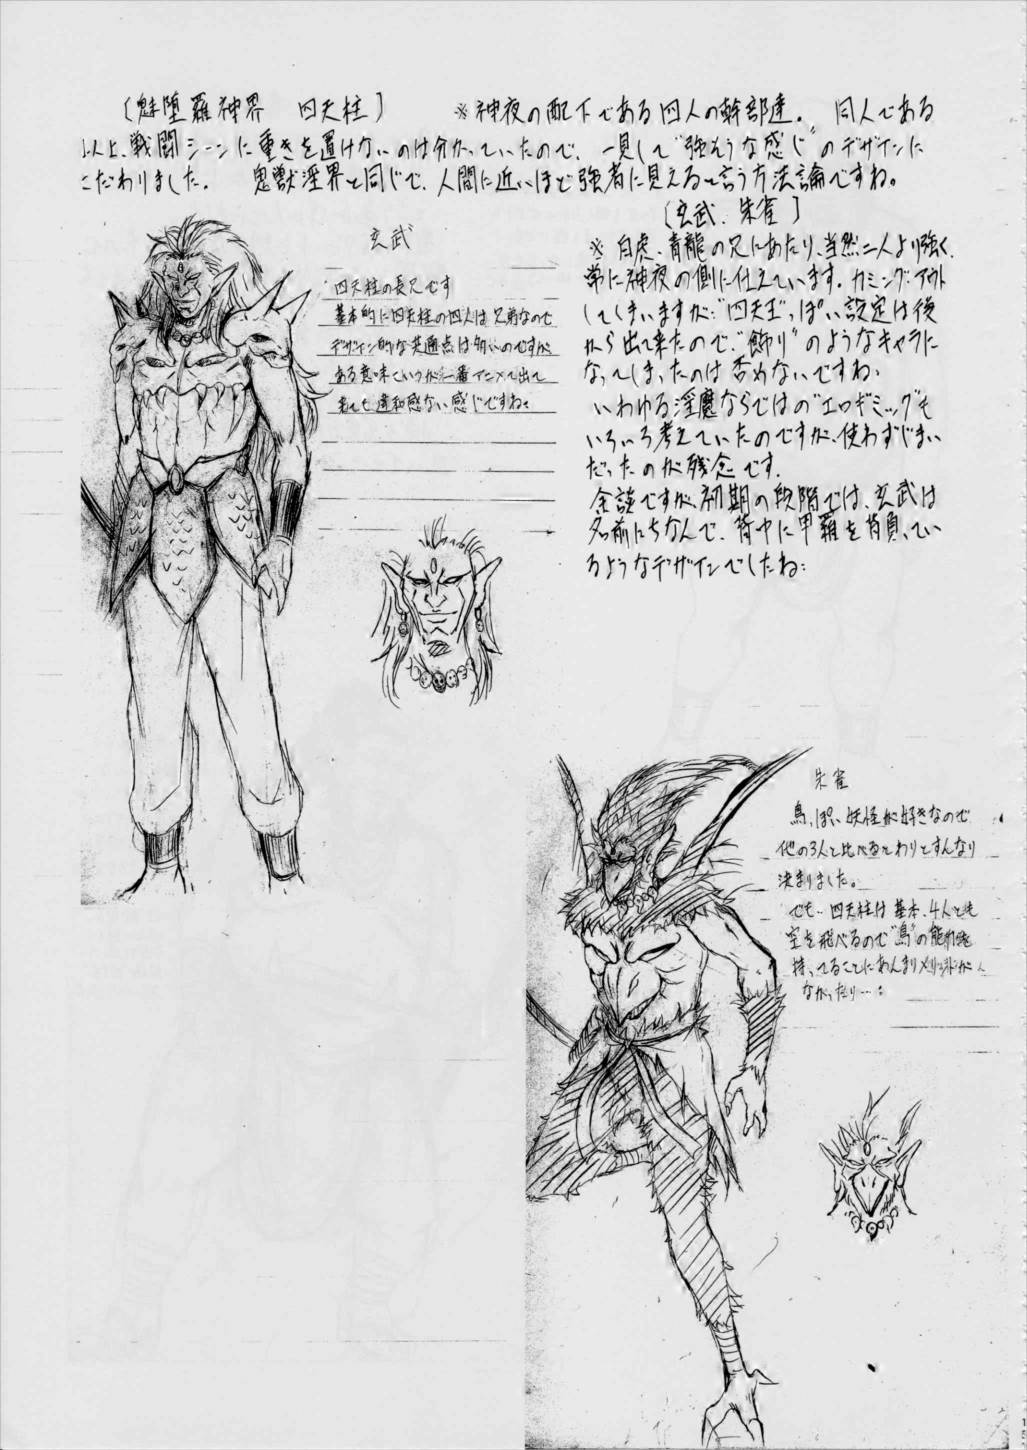 〔魅堕羅神界 四天柱〕 ※神夜の配下である四人の幹部達。 同人である
以上、戦闘シーンに重きを置けないのは分かっていたので、一見して“強そうな感じ”のデザインに
こだわりました。 鬼獣淫界と同じで、人間に近いほど強者に見えると言う方法論ですね。
〔玄武、朱雀〕
※白虎、青龍の兄にあたり、当然二人より強く、
常に神夜の側に仕えています。カミング・アウト
してしまいますが…“四天王”っぽい設定は後
から出て来たので、“飾り”のようなキャラに
なってしまったのは否めないですね…
いわゆる淫魔ならではの“エロギミック”も
いろいろ考えていたのですが、使わずじまい
だったのが残念です。
余談ですが、初期の段階では、玄武は
名前にちなんで、背中に甲羅を背負ってい
るようなデザインでしたね…
玄武
四天柱の長兄です
基本的に四天柱の四人は兄弟なので
デザイン的な共通点は多いのですが
ある意味でいうが一番アニメで出て
来ても違和感ない感じですね。
朱雀
鳥っぽい妖怪が好きなので
他の3人と比べるとわりとすんなり
決まりました。
でも…四天柱は基本、4人とも
空を飛べるので“鳥”の能力を
持ってることにあんまりメリットが
なかったり…